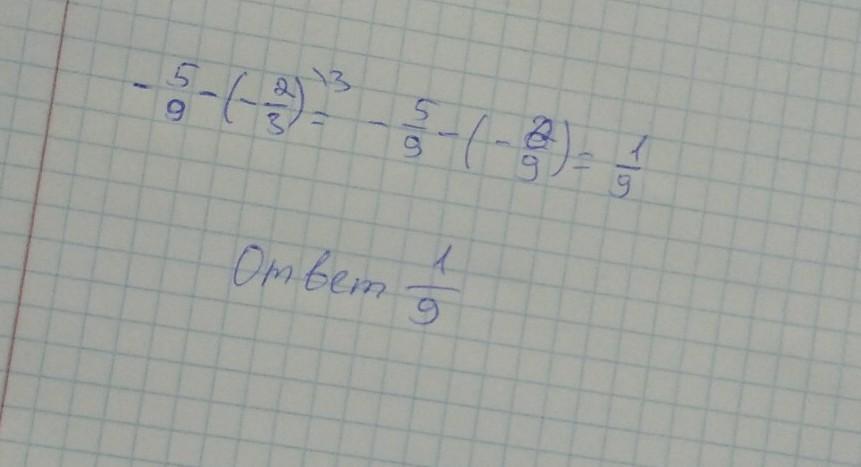 -5/9 - (-2/3)\3 = -5/9 - (-6/9) = 1/9
Ответ 1/9